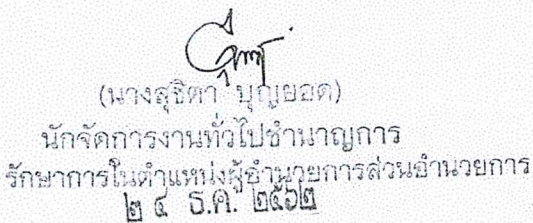 (นางสุธิดา บุญยอด)
นักจัดการงานทั่วไปชำนาญการ
รักษาการในตำแหน่งผู้อำนวยการส่วนอำนวยการ
๒๔ ธ.ค. ๒๕๖๒